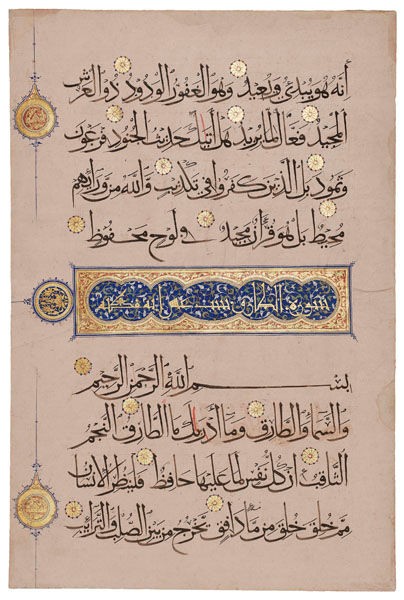 إنه هو يبدئ ويعيد وهو الغفور الودود ذو العرش
المجيد فعال لما يريد هل أتيك حديث الجنود فرعون
وثمود بل الذين كفروا في تكذيب والله من ورائهم
محيط بل هو قرآن مجيد في لوح محفوظ
سورة الطارق سبع عشرة آية مكية
بسم الله الرحمن الرحيم
والسماء والطارق وما أدريك ما الطارق النجم
الثاقب إن كل نفس لما عليها حافظ فلينظر الإنسان
مم خلق خلق من ماء دافق يخرج من بين الصلب والترائب